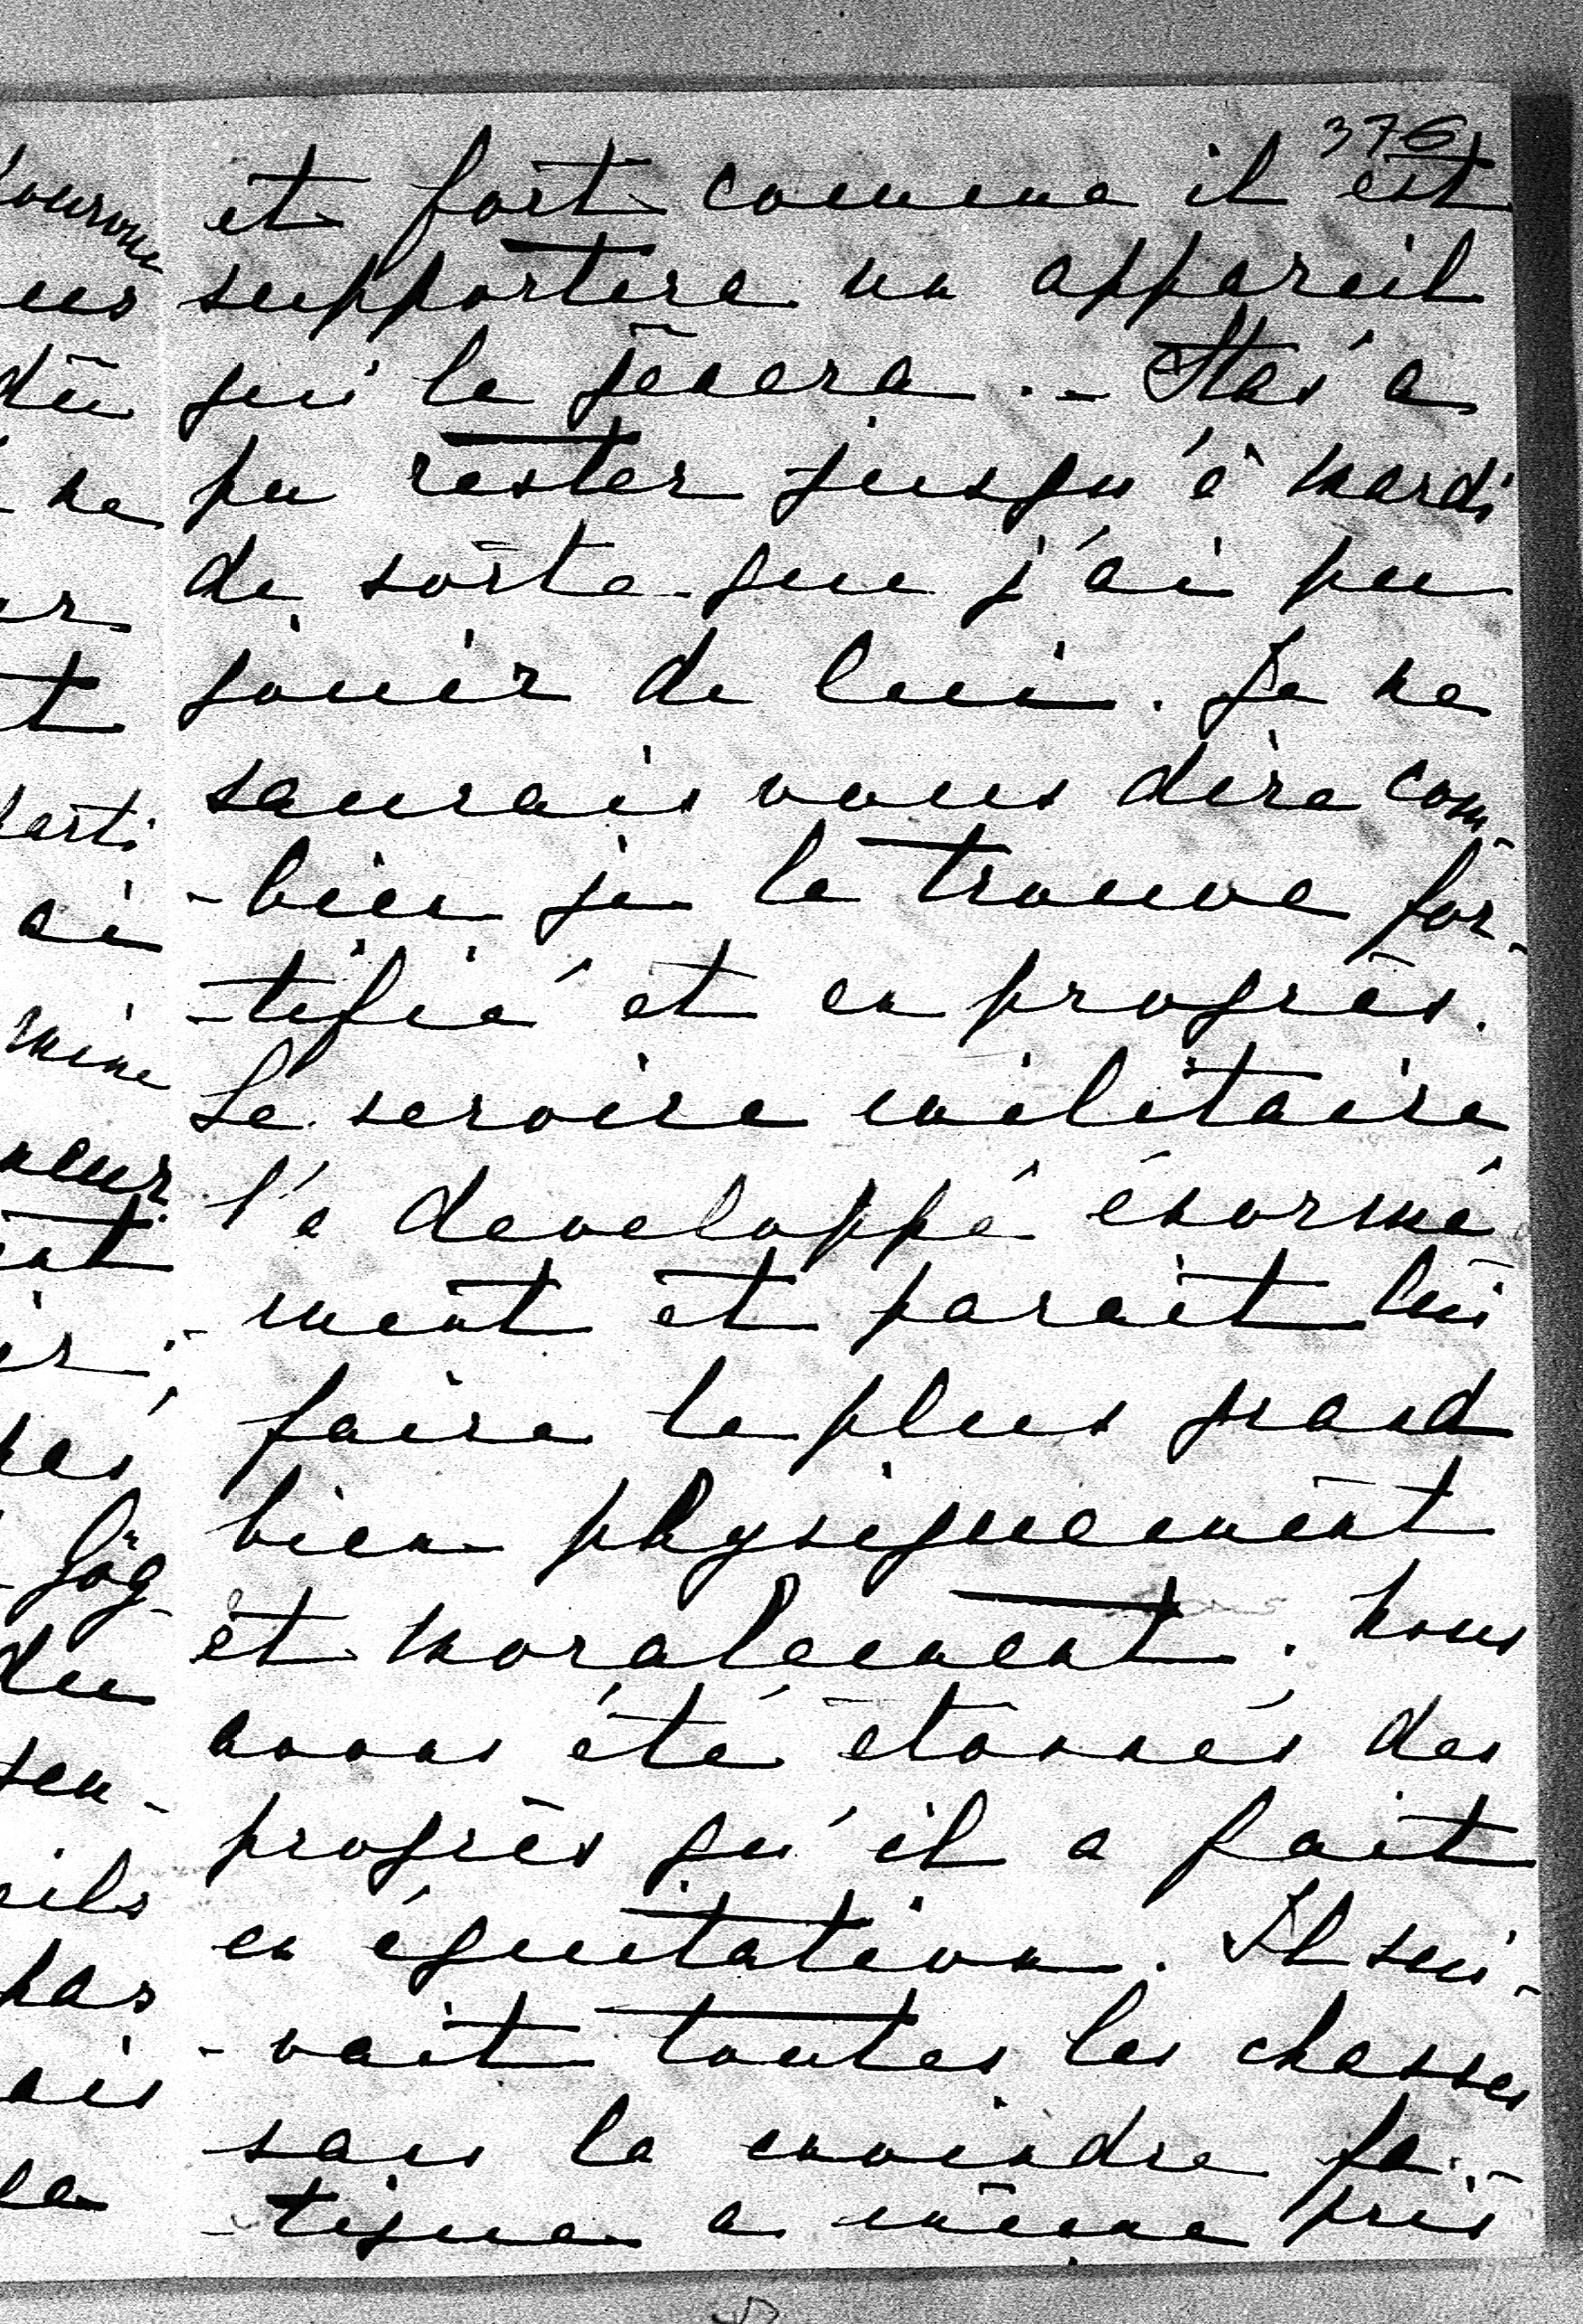 376
et fort comme il est
supportera un appareil
qui le gênera. - Stas' a
pu rester jusqu'à mardi
de sorte que j'ai pu
jouir de lui. Je ne
saurais vous dire com-
-bien je le trouve for-
-tifié et en progrès.
Le service militaire
l'a developpé énormé
-ment et parait lui
faire le plus grand
bien physiquement
et moralement. Nous
avons été étonnés des
progrès qu'il a fait
en équitation. Il sui-
-vait toutes les chasses
sans la moindre fa-
-tigue a même pris